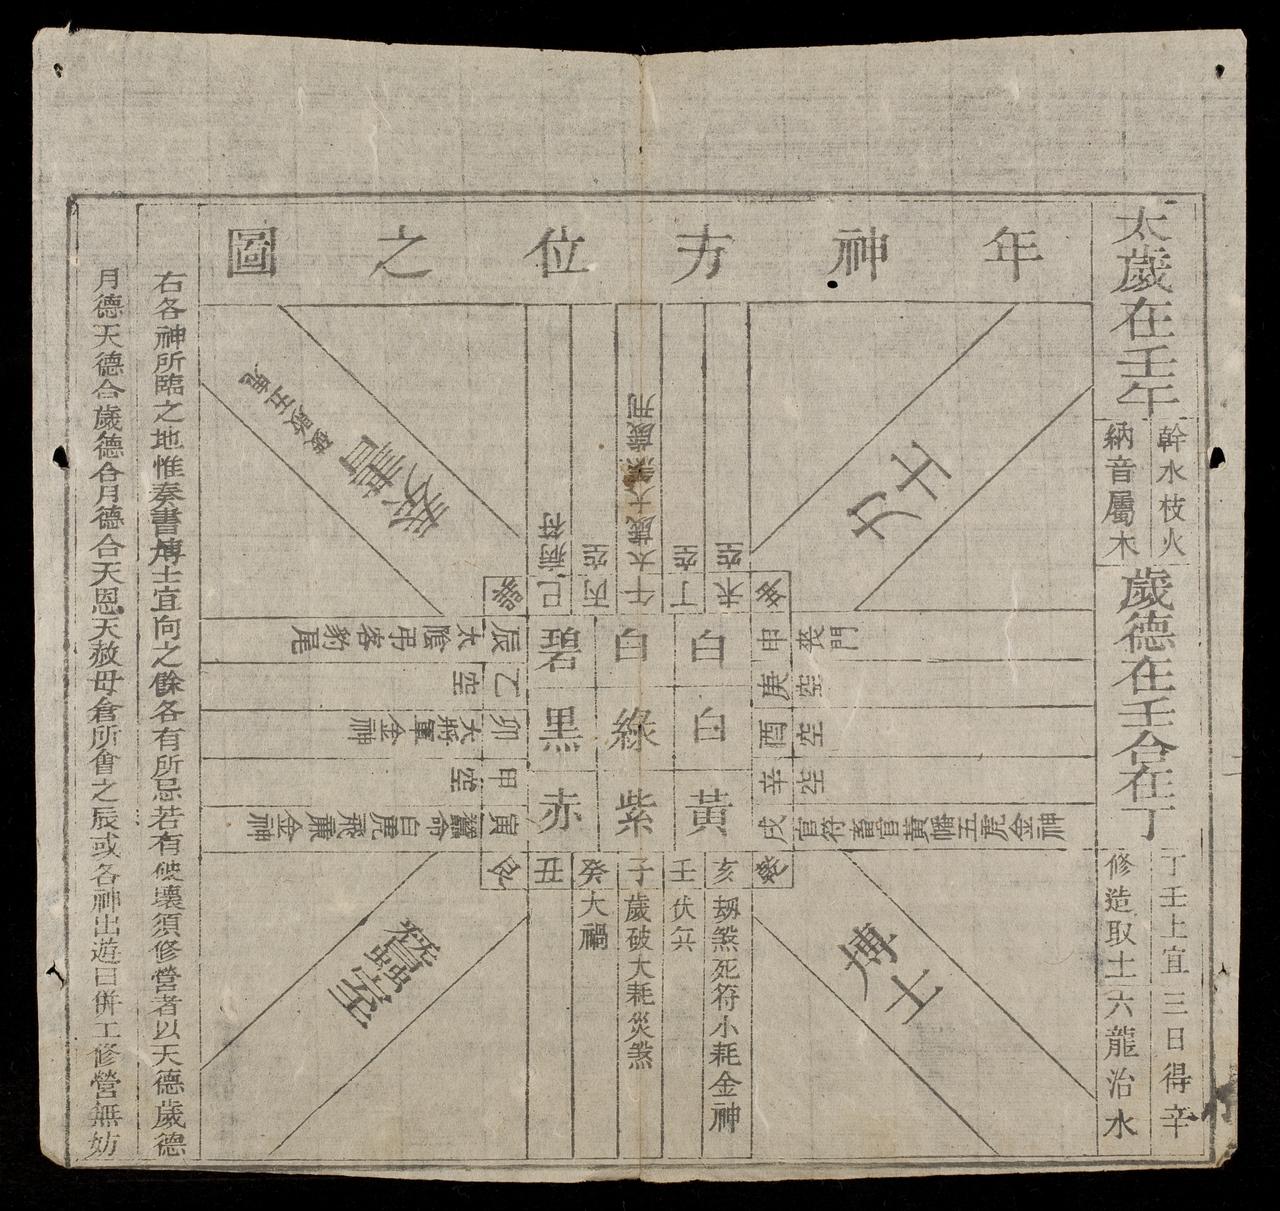 太歲在壬午
幹水枝火
納音屬木
歲德在壬合在丁
丁壬上宜
修造取土
三日得辛
六龍治水
年神方位之圖
力士
奏書
歲殺五鬼
博士
蠶室
未空
丁空
午太歲大煞歲刑
丙空
巳病符
坤
巽
乾
艮
申喪門
庚空
酉空
辛空
戌官符畜官黃幡五虎金神
辰太陰弔客豹尾
乙空
卯大將軍金神
甲空
寅蠶命白虎飛廉金神
白白碧
白綠黑
黃紫赤
亥劫煞死符小耗金神
壬伏兵
子歲破大耗災煞
癸大禍
丑
右各神所臨之地惟奏書博士宜向之餘各有所忌若有破壞須修營者以天德歲德
月德天德合歲德合月德合天恩天赦母倉所會之辰或各神出遊日併工修營無妨